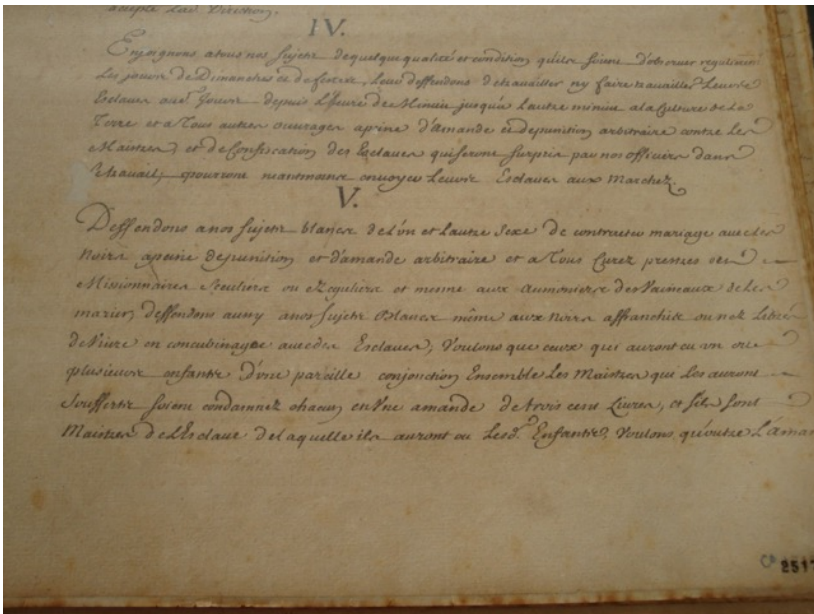 accepté Lad. Direction.
IV.
Enjoignons a tous nos Sujets de quelque qualité et condition qu'ils soient d'observer regulierem
Les jours de Dimanches et de festes, Leur deffendons de travailler ny faire travailler Leurs
Esclaves auxd. Jours depuis L'heure de Minuit jusqu'a Lautre minuit a la Culture de La
Terre et a Tous autres ouvrages a peine d'amande et de punition arbitraire contre Les
Maistres, et de Confiscation des Esclaves qui seront surpris par nos officiers dans
travail, pourront neantmoins envoyer Leurs Esclaves aux Marchez.
V.
Deffendons a nos Sujets blancs de L'un et Lautre Sexe de contracter mariage avec Les
Noirs a peine de punition et d'amande arbitraire et a Tous Curez prestres ou
Missionnaires Seculiers ou Reguliers et mesme aux aumoniers des Vaisseaux de Les
marier, deffendons aussy a nos Sujets Blancs même aux Noirs affranchis ou nez Libres
de Vivre en concubinage avec des Esclaves, Voulons que ceux qui auront eu un ou
plusieurs enfants d'une pareille conjonction Ensemble Les Maistres qui Les auront
Soufferts soient condamnez chacun en Une amande de trois cent Livres, et s'ils sont
Maistres de L'Esclave de laquelle ils auront eu Lesd. Enfants, Voulons qu'outre L'aman
251